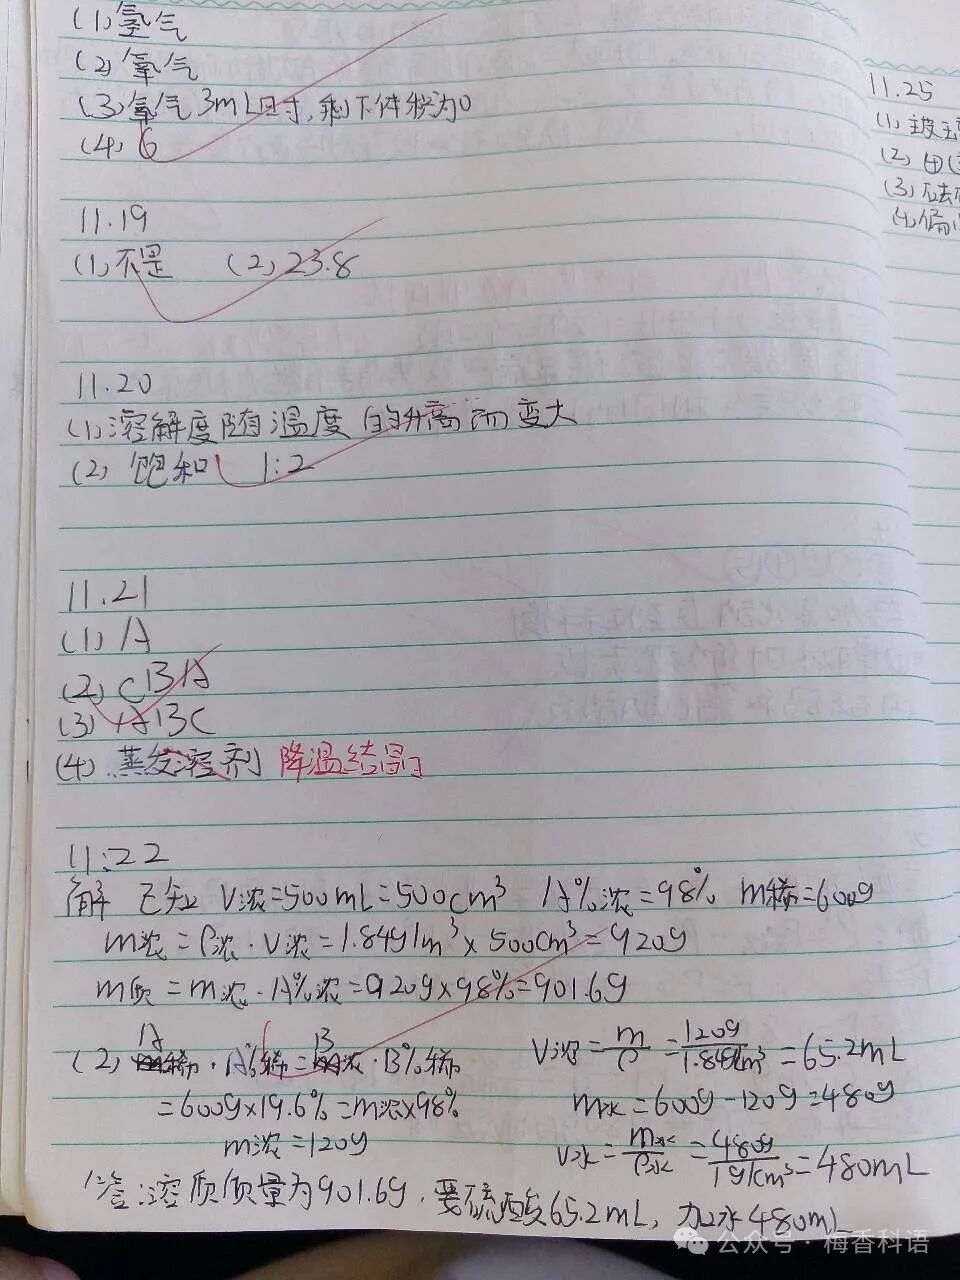 (1)氢气
(2)氧气
(3)氧气3mL时,剩下体积为0
(4) 6
11.19
(1)不是 (2)23.8
11.20
(1)溶解度随温度的升高而变大
(2)饱和 1:2
11.21
(1) A
(2) CBA
(3) ABC
(4) 蒸发溶剂 降温结晶
11.22
解 已知 V浓=500mL=500cm³ A%浓=98% m稀=600g
m浓=ρ浓·V浓=1.84g/cm³×500cm³=920g
m质=m浓·A%浓=920g×98%=901.6g
(2) A稀·A%稀=B浓·B%稀
=600g×19.6%=m浓×98%
m浓=120g
V浓=m/ρ=120g/1.84g/cm³=65.2mL
m水=600g-120g=480g
V水=m水/ρ水=480g/1g/cm³=480mL
答:溶质质量为901.6g.要硫酸65.2mL,加水480mL
11.25
(1)
(2)
(3)
(4)偏
公众号·梅香科语